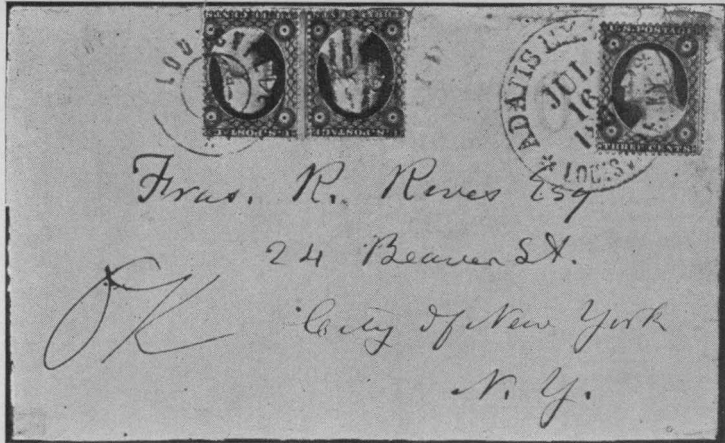 LOUISVILLE
U.S. POSTAGE
ADAMS EX.
JUL
16
LOUIS
THREE CENTS
Fras. R. Rives Esq
24 Beaver St.
OK
City of New York
N. Y.